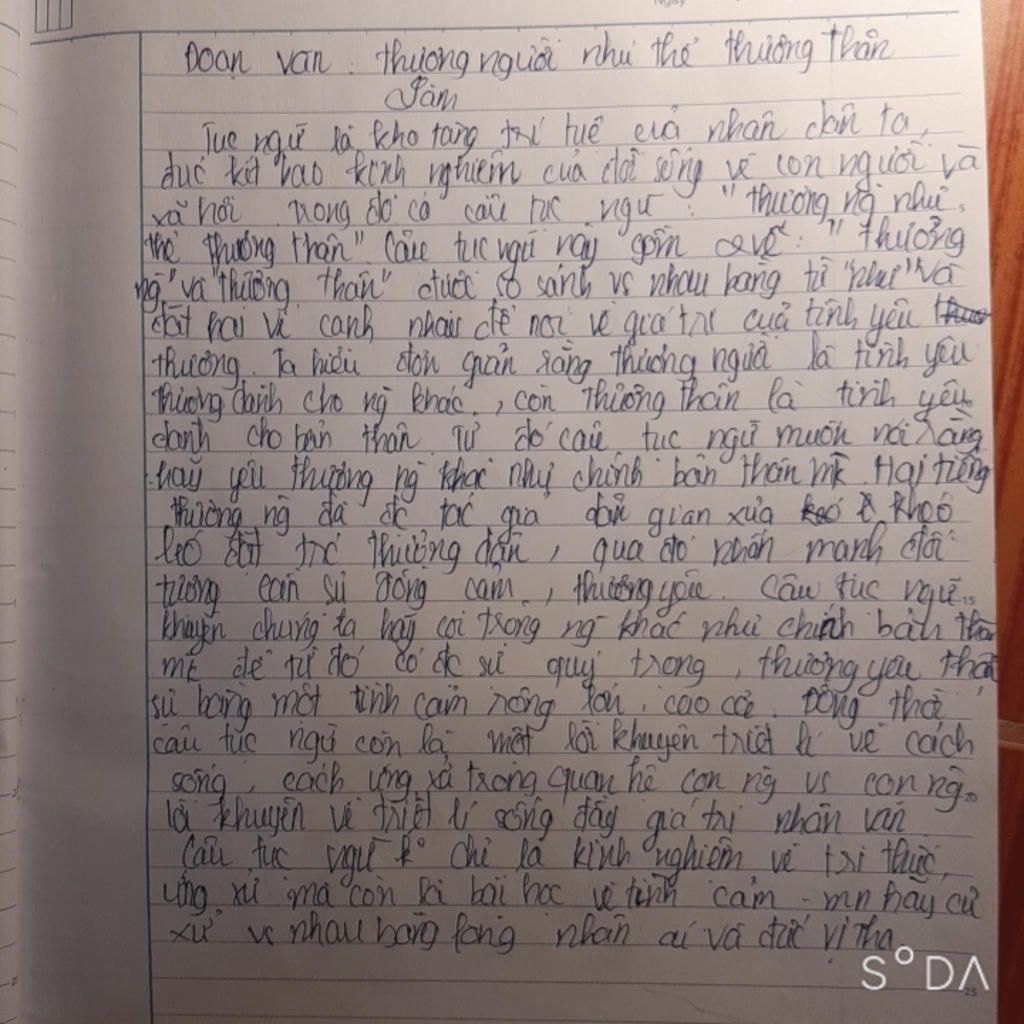 Ngày
Đoạn văn: thương người như thể thương thân
Làm
Tục ngữ là kho tàng trí tuệ của nhân dân ta,
đúc kết bao kinh nghiệm của đời sống về con người và
xã hội. Trong đó có câu tục ngữ: "thương ng như
thể thương thân". Câu tục ngữ này gồm 2 vế: "thương
ng" và "thương thân" được so sánh vs nhau bằng từ "như" và
đặt hai vế cạnh nhau để nói về giá trị của tình yêu
thương. Ta hiểu đơn giản rằng thương người là tình yêu
thương dành cho ng khác, còn thương thân là tình yêu
dành cho bản thân. Từ đó câu tục ngữ muốn nói rằng
hãy yêu thương ng khác như chính bản thân mk. Hai tiếng
thương ng đã đc tác giả dân gian xưa khéo
léo đặt trc thương thân, qua đó nhấn mạnh đối
tượng cần sự đồng cảm, thương yêu. Câu tục ngữ 15
khuyên chúng ta hãy coi trọng ng khác như chính bản thân
mk để từ đó có đc sự quý trọng, thương yêu thật
sự bằng một tình cảm rộng lớn, cao cả. Đồng thời
câu tục ngữ còn là một lời khuyên triết lí về cách
sống, cách ứng xử trong quan hệ con ng vs con ng. 20
Lời khuyên về triết lí sống đầy giá trị nhân văn
Câu tục ngữ k° chỉ là kinh nghiệm về tri thức,
ứng xử mà còn là bài học về tình cảm. mn hãy cư
xử vs nhau bằng lòng nhân ái và đức vị tha.
SODA
25